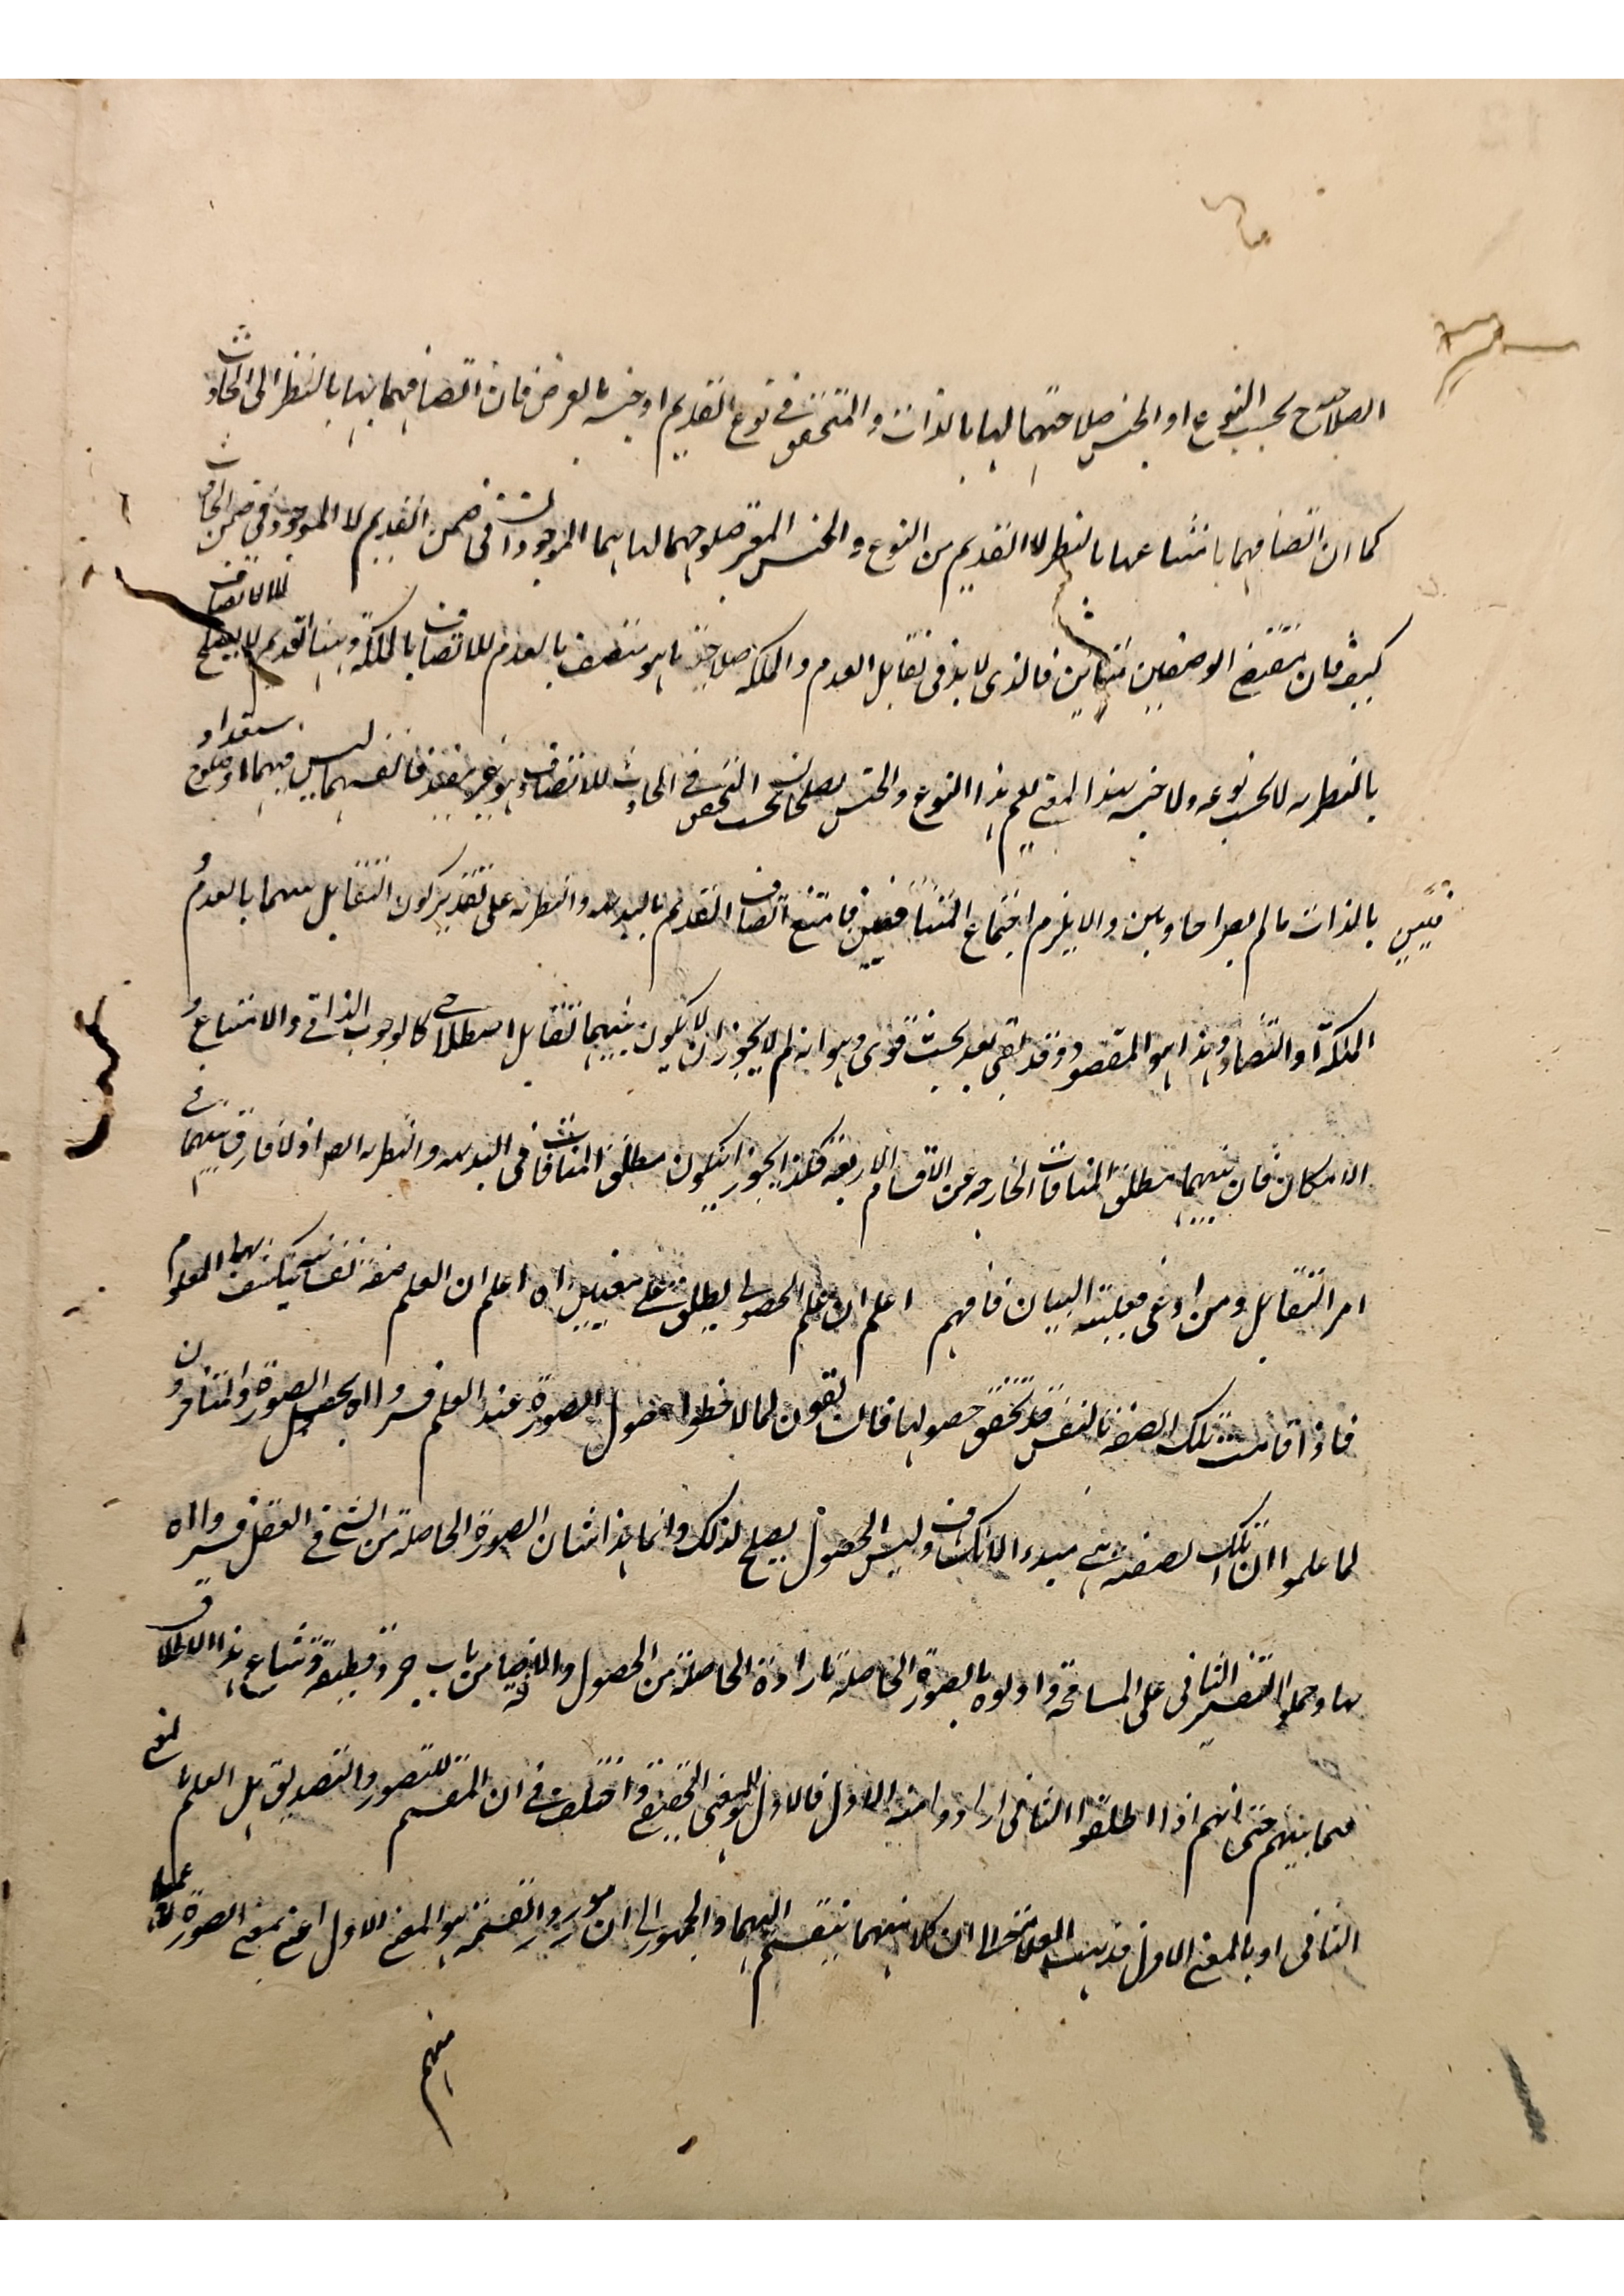 الصلاح بحسب النوع او الجنس صلاحتهما لها بالذات والمتحقق في نوع القديم او جنسه بالعرض فان اتصافهما بها بالنظر الى الحادث
كما ان اتصافهما بامتناعها بالنظر الا القديم من النوع والجنس المعتبر صلوحهما لها هما الموجودان في ضمن القديم لا الموجود في ضمن الحادث
كيف فان مقتضى الوصفين متباين فالذي لا بد في تقابل العدم والملكة صلاحية ما هو متصف بالعدم للاتصاف بالملكة وههنا القديم لا يصلح للاتصاف
بالنظرية لا بحسب نوعه ولا جنسه بهذا المعنى نعم هذا النوع والجنس يصلحان بحسب التحقق في الحادث للاتصاف وهو غير مفيد فانفسهما ليس فيهما استعداد وصلوح
بالذات ما لم يصرا حادثين والا يلزم اجتماع المتنافيين فامتنع اتصاف القديم بالبديهة والنظرية على تقدير كون التقابل بينهما بالعدم و
الملكة او التضاد وهذا هو المقصود وقد بقي بعد بحث قوي وهو انه لم لا يجوز ان لا يكون بينهما تقابل اصطلاحي كالوجوب الذاتي والامتناع و
الامكان فان بينهما مطلق المنافات الخارجة عن الاقسام الاربعة فكذا يجوز ان يكون مطلق المنافات في البديهة والنظرية ايضا اذ لا فارق بينهما في
امر التقابل ومن ادعى فعليه البيان فافهم اعلم ان علم الحصولي يطلق على معنيين اه اعلم ان العلم صفة نفسانية ينكشف بها المعلوم
فاذا قامت تلك الصفة بالنفس قد تحقق حصولها فالسابقون لما لاحظوا حصول الصورة عند العلم فسروااه بحصول الصورة والمتأخرون
لما علموا ان تلك الصفة هي مبدء الانكشاف وليس الحصول يصلح لذلك وانما هذا شان الصورة الحاصلة من الشئ في العقل فسروااه
بها وحملوا التفسير الثاني على المسامحة واولوه بالصورة الحاصلة بارادة الحاصلة من الحصول والاضافة من باب جرد قطيفة وشاع هذا الاطلاق
فيما بينهم حتى انهم اذا اطلقوا الثاني ارادوا منه الاول فالاول هو المعنى الحقيقي واختلف في ان المقسم للتصور والتصديق هل العلم بالمعنى
الثاني او بالمعنى الاول فذهب الى ان كلا منهما ينقسم اليهما والجمهور الى ان مورد القسمة هو المعنى الاول اعني بمعنى الصورة
منهم